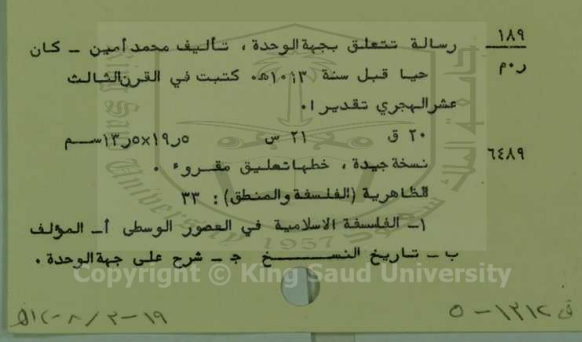 ١٨٩ رسالة تتعلق بجهة الوحدة ، تأليف محمد أمين ـ كان
ر٠م حيا قبل سنة ١٠١٣هـ٠ كتبت في القرن الثالث
عشر الهجري تقديرا ٠
٢٠ ق ٢١ س ٥ر١٩×٥ر١٣ســم
٦٤٨٩ نسخة جيدة ، خطها تعليق مقروء ٠
الظاهرية (الفلسفة والمنطق) : ٣٣
١ـ الفلسفة الاسلامية في العصور الوسطى أـ المؤلف
ب ـ تاريخ النســـخ جـ ـ شرح على جهة الوحدة ٠
Copyright © King Saud University
University
1957
ف ١٢١٢ - ٥